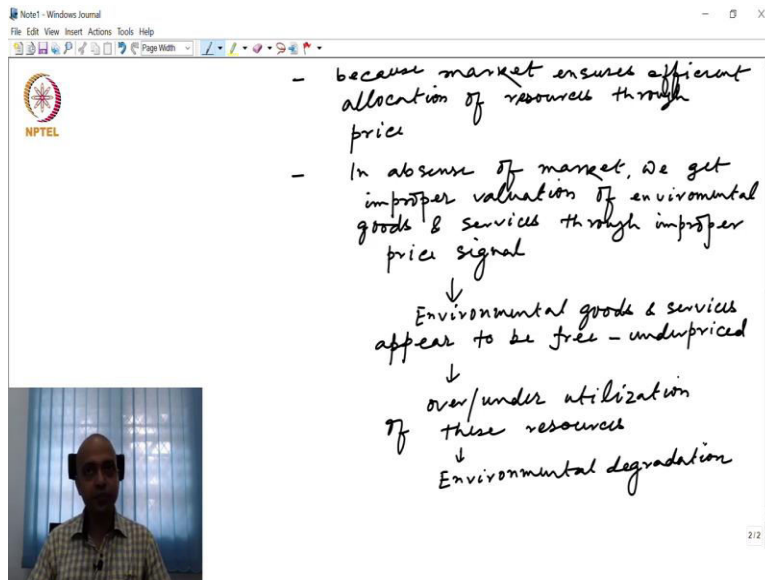 Note1 - Windows Journal
File Edit View Insert Actions Tools Help
Page Width
NPTEL
- because market ensures efficient
allocation of resources through
price
- In absense of market, we get
improper valuation of enviromental
goods & services through improper
price signal
↓
Environmental goods & services
appear to be free - underpriced
↓
over/under utilization
of these resources
↓
Environmental degradation
2/2